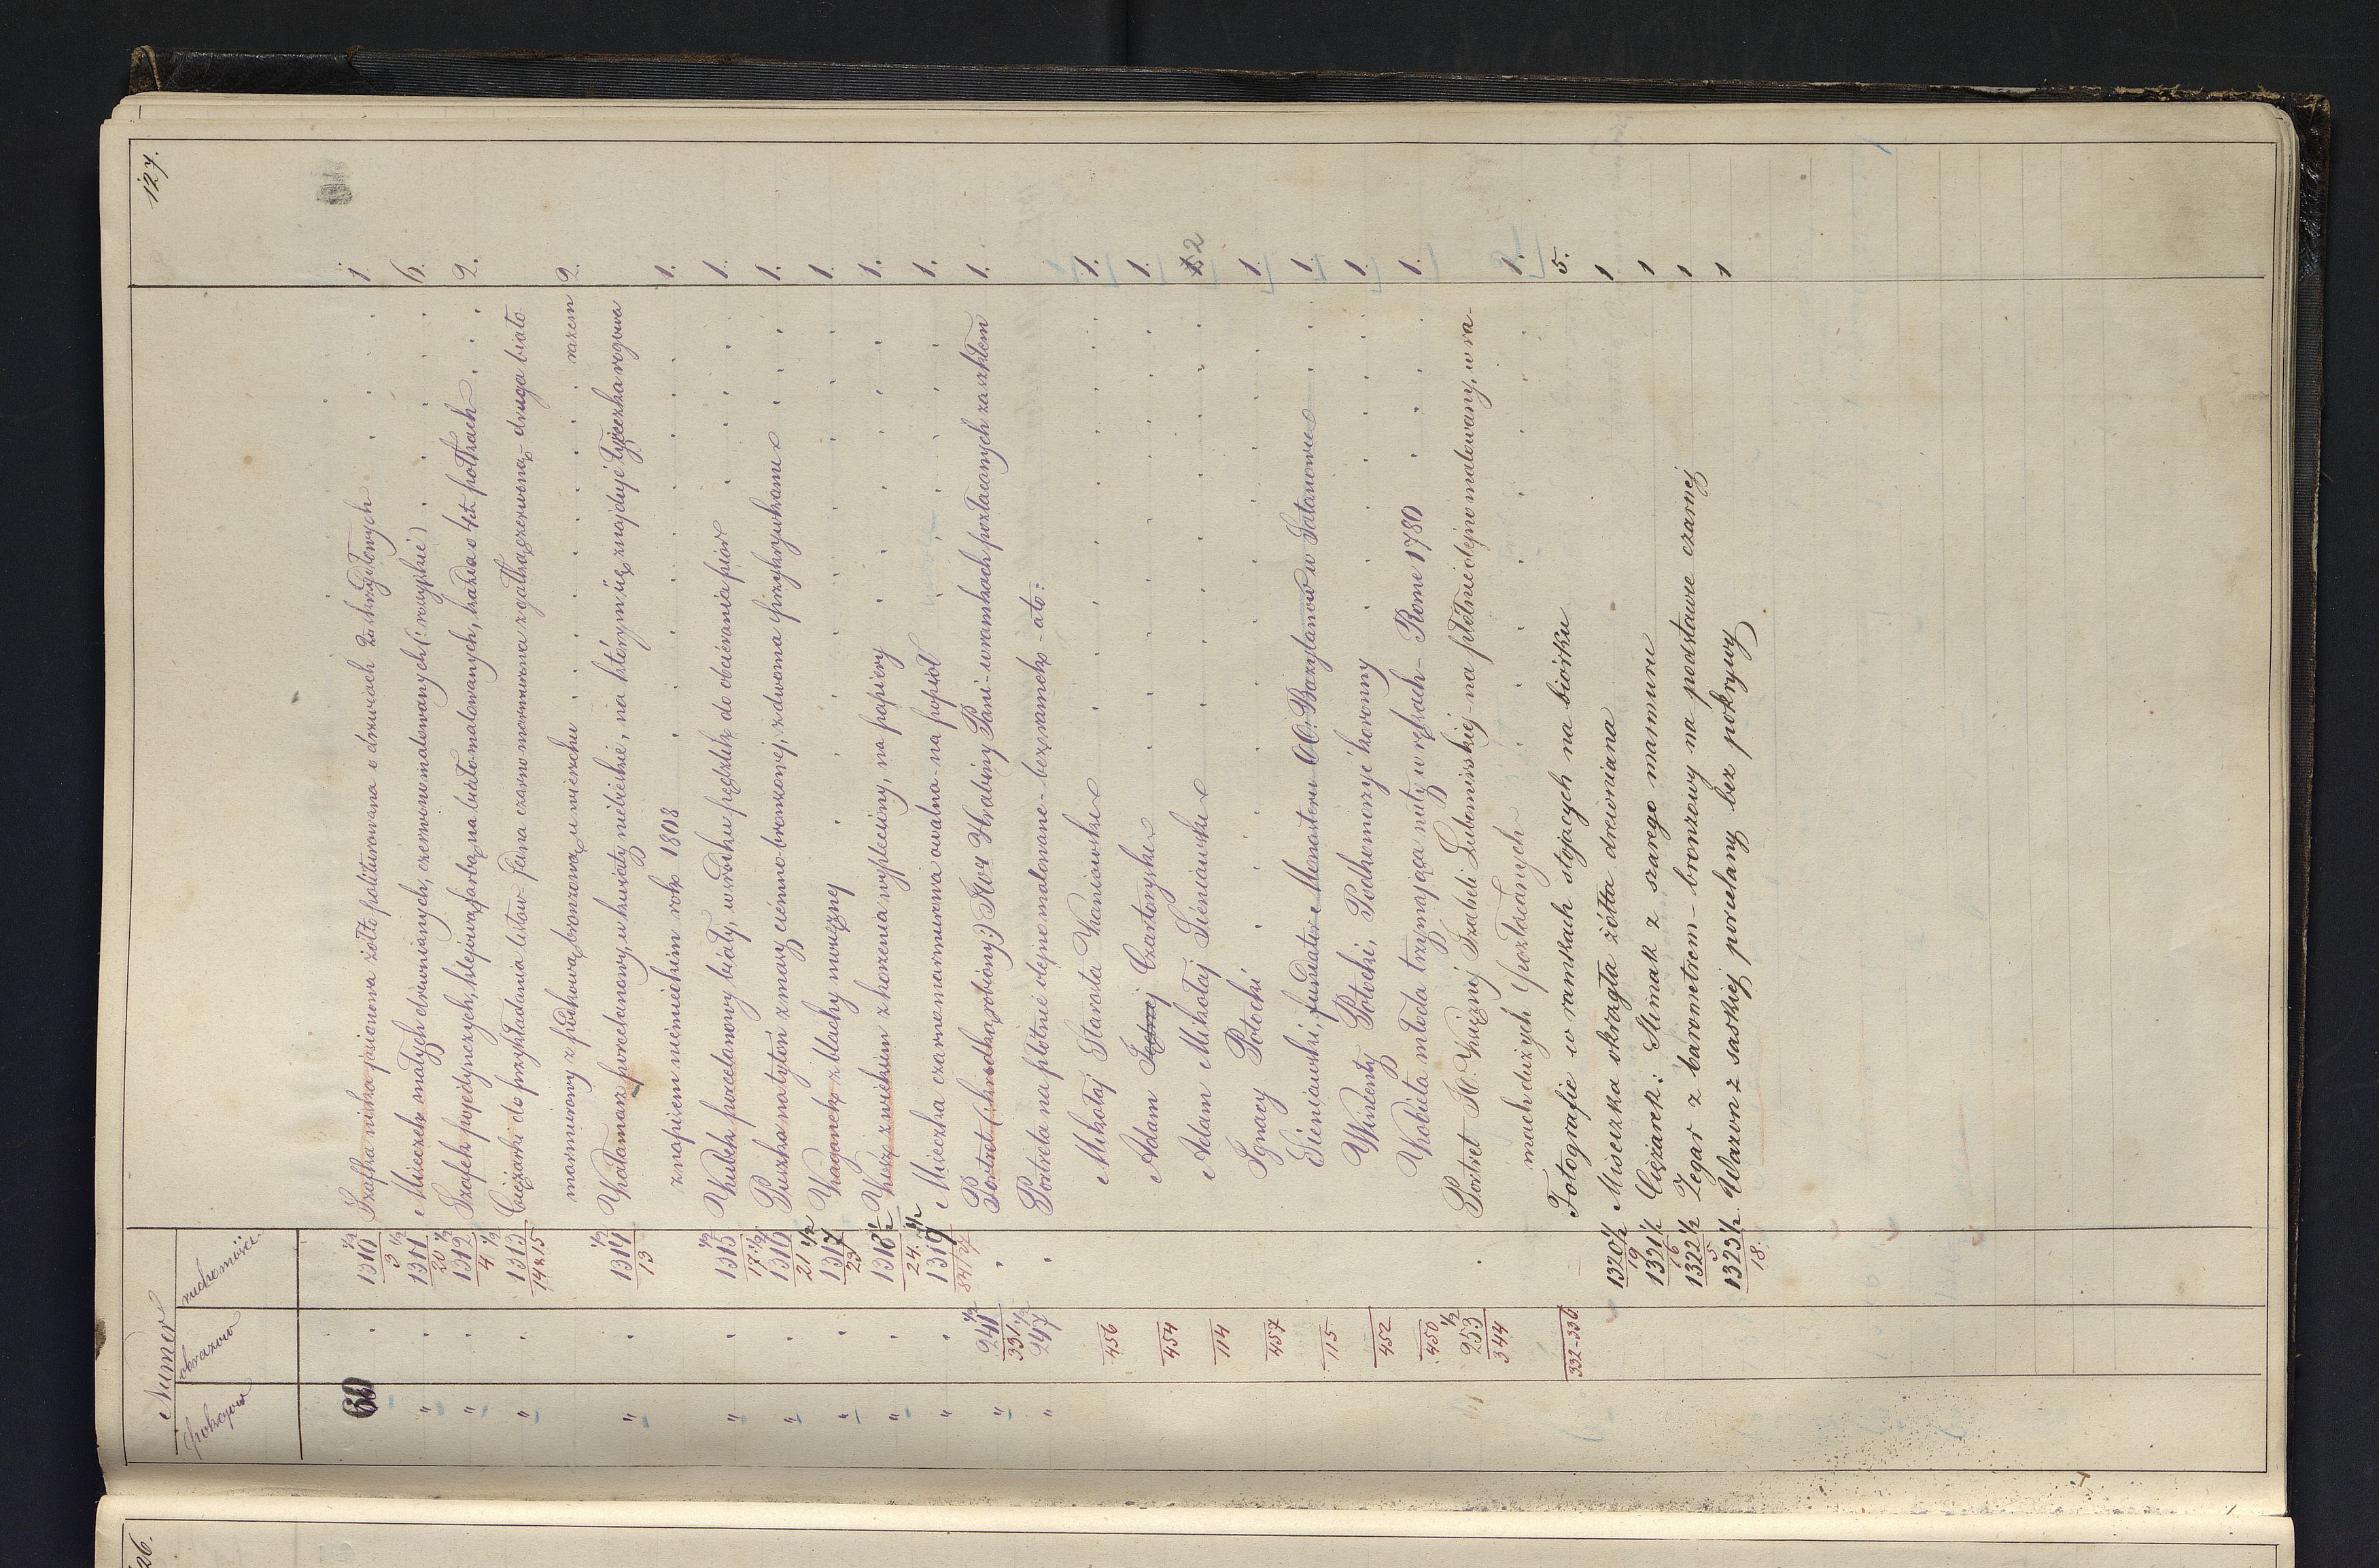 127.
Numer
pokojów obrazów ruchomości
60 1310 1/2 / 3 Szafka niska jesionowa żółto politurowana o drzwiach 2ch skrzydłowych 1.
" 1311 1/2 / 20 Miseczek małych drewnianych, czerwono malowanych (: rosyjskie) 6.
" 1312 1/2 / 4 Szafek pojedyńczych, klejową farbą na biało malowanych, każda o 4ch półkach 2.
" 1313 1/2 / 14 & 15 Ciężarki do przykładania listów jedna czarno marmurowa z gałką czerwoną - druga biało
marmurowy z podkową bronzową u wierzchu razem 2.
" 1314 1/2 / 13 Kałamarz porcelanowy, w kwiaty niebieskie, na którym się znajduje łyżeczka rogowa
z napisem niemieckim roku 1808 1.
" 1315 1/2 / 17 Kubek porcelanowy biały, w środku pędzelek do obcierania piór 1.
" 1316 1/2 / 21 Puszka na tytoń z masy ciemno-bronzowej, z dwoma przykrywkami 1.
" 1317 1/2 / 23 Kaganek z blachy mosiężnej 1.
" 1318 1/2 Kosz z wiekiem z korzenia wypleciony, na papiery 1.
" 24. 1319 1/2 Miseczka czarno marmurowa owalna - na popiół 1.
" 241 1/2 / 331 Portret (: kredką robiony:) Hrabiny Pani - w ramkach pozłacanych za szkłem 1.
" 247 1/2 Portreta na płótnie olejno malowane - bez ramek - a to:
456 Mikołaj Starosta Kaniowski 1.
454 Adam Czartoryski 1.
114 Adam Mikołaj Sieniawski 2
457 Ignacy Potocki 1.
115 Sieniawski, fundator Monasteru OO. Bazylianów w Satanowie 1.
452 Wincenty Potocki, Podkomorzyć koronny 1.
450 Kobieta młoda trzymająca nuty w rękach - Rome 1780 1.
253 1/2 / 344 Portret Xżnej Izabeli Lubomirskiej - na płótnie olejno malowany, w ra-
mach dużych pozłacanych 1.
332-336 Fotografie w ramkach stojących na biórku 5.
1320 1/2 / 19 Miseczka okrągła żółta drewniana 1
1321 1/2 / 16 Ciężarek: Ślimak z szarego marmuru 1
1322 1/2 / 5 Zegar z barometrem - bronzowy na podstawie czarnej 1
1323 1/2 / 18. Wazon z saskiej porcelany bez pokrywy 1